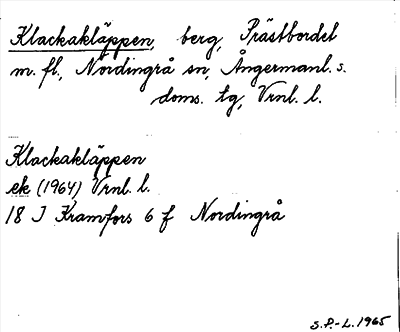 Klackakläppen, berg, Prästbordet
m. fl., Nordingrå sn, Ångermanl. s.
doms. tg, Vrnl. l.
Klackakläppen
ek (1964) Vrnl. l.
18 J Kramfors 6 f Nordingrå
S.P.-L. 1965